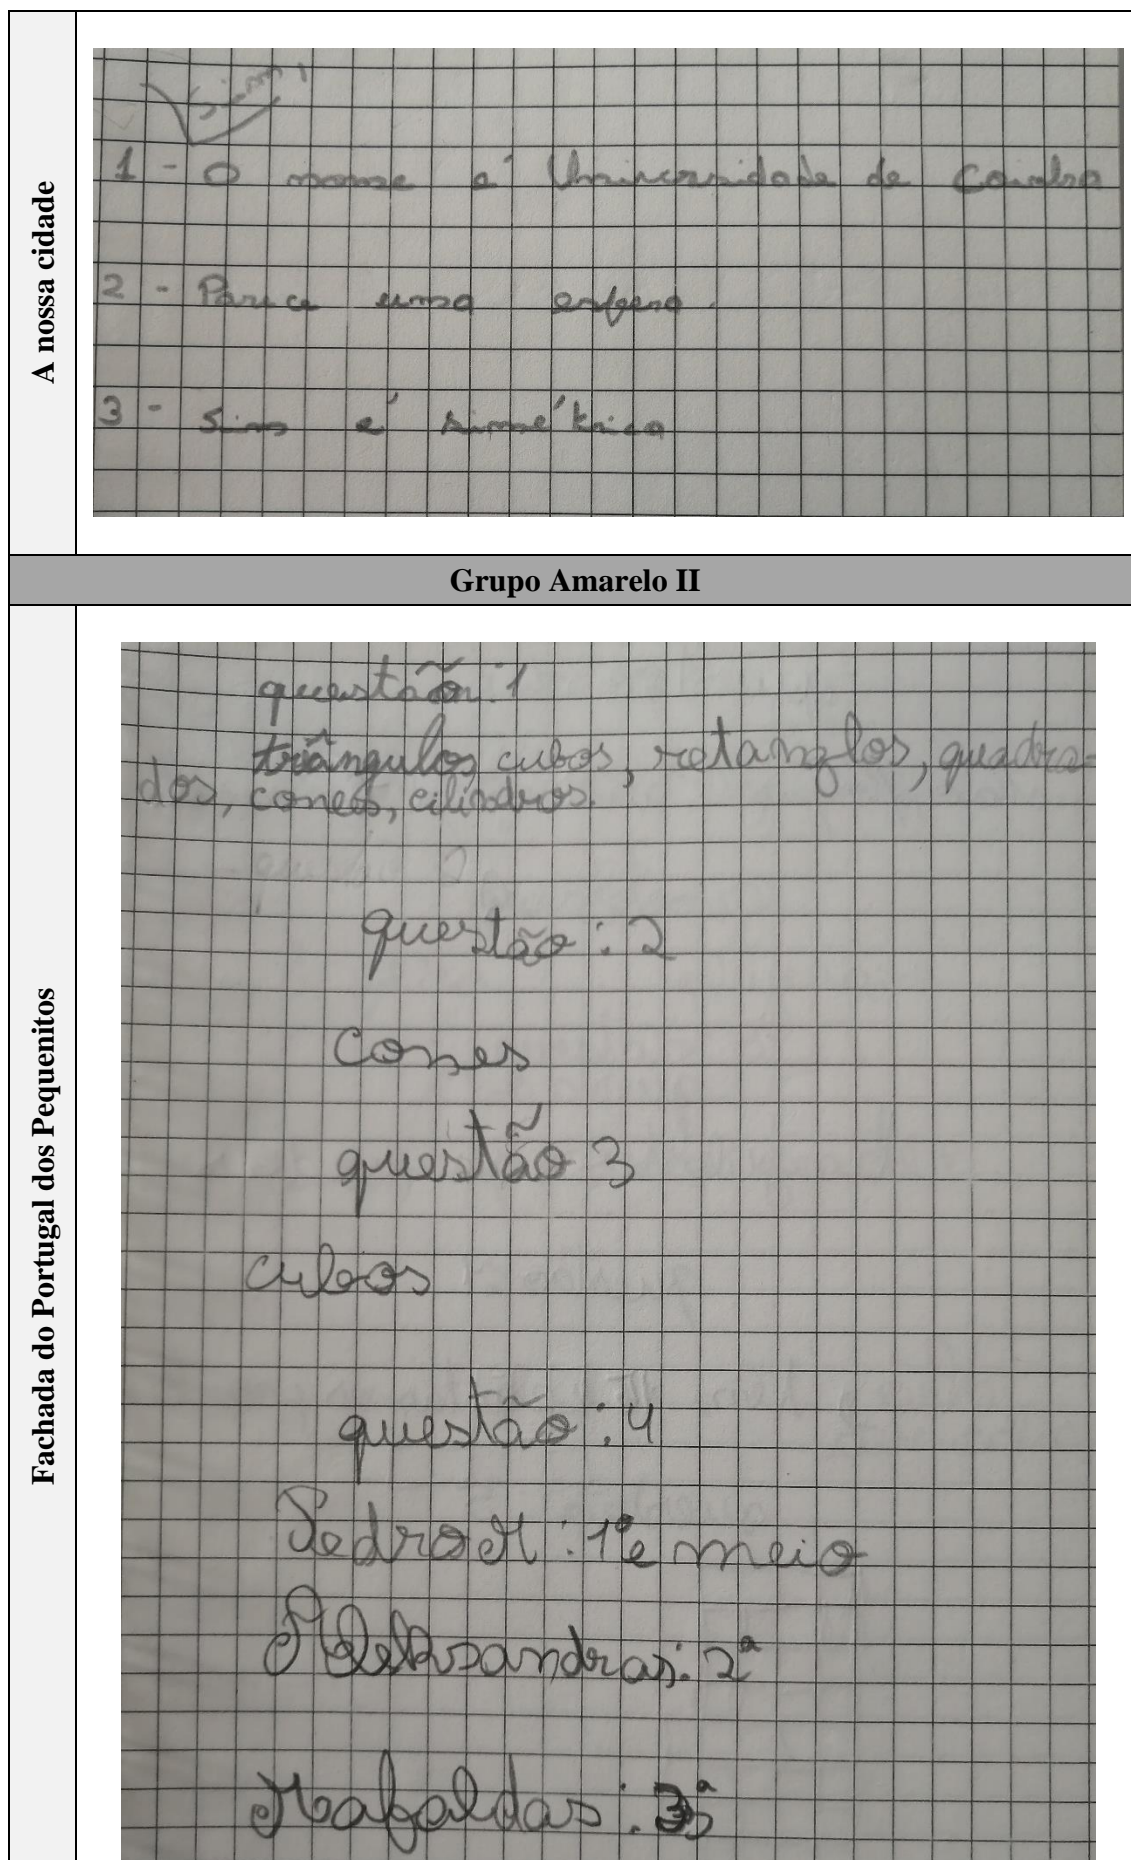 A nossa cidade
Sim!
1 - O nome é Universidade de Coimbra
2 - Parece uma esfera.
3 - Sim é simétrica
Grupo Amarelo II
Fachada do Portugal dos Pequenitos
questão: 1
triângulos, cubos, retanglos, quadra-
dos, cones, cilindros.
questão: 2
cones
questão 3
cubos
questão: 4
Pedro M: 1º e meio
Aleksandras: 2ª
Mafaldas: 3ª